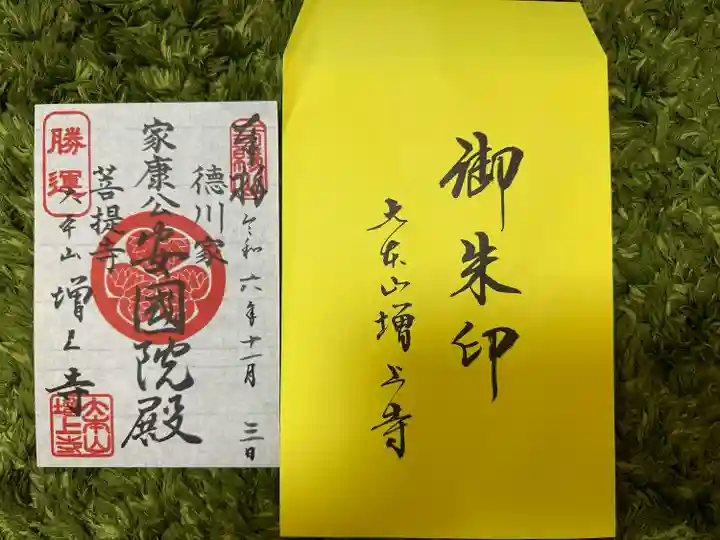 奉拝
令和六年十一月三日
徳川家
家康公
安國院殿
菩提寺
勝運
大本山増上寺
大本山
増上寺
御朱印
大本山増上寺